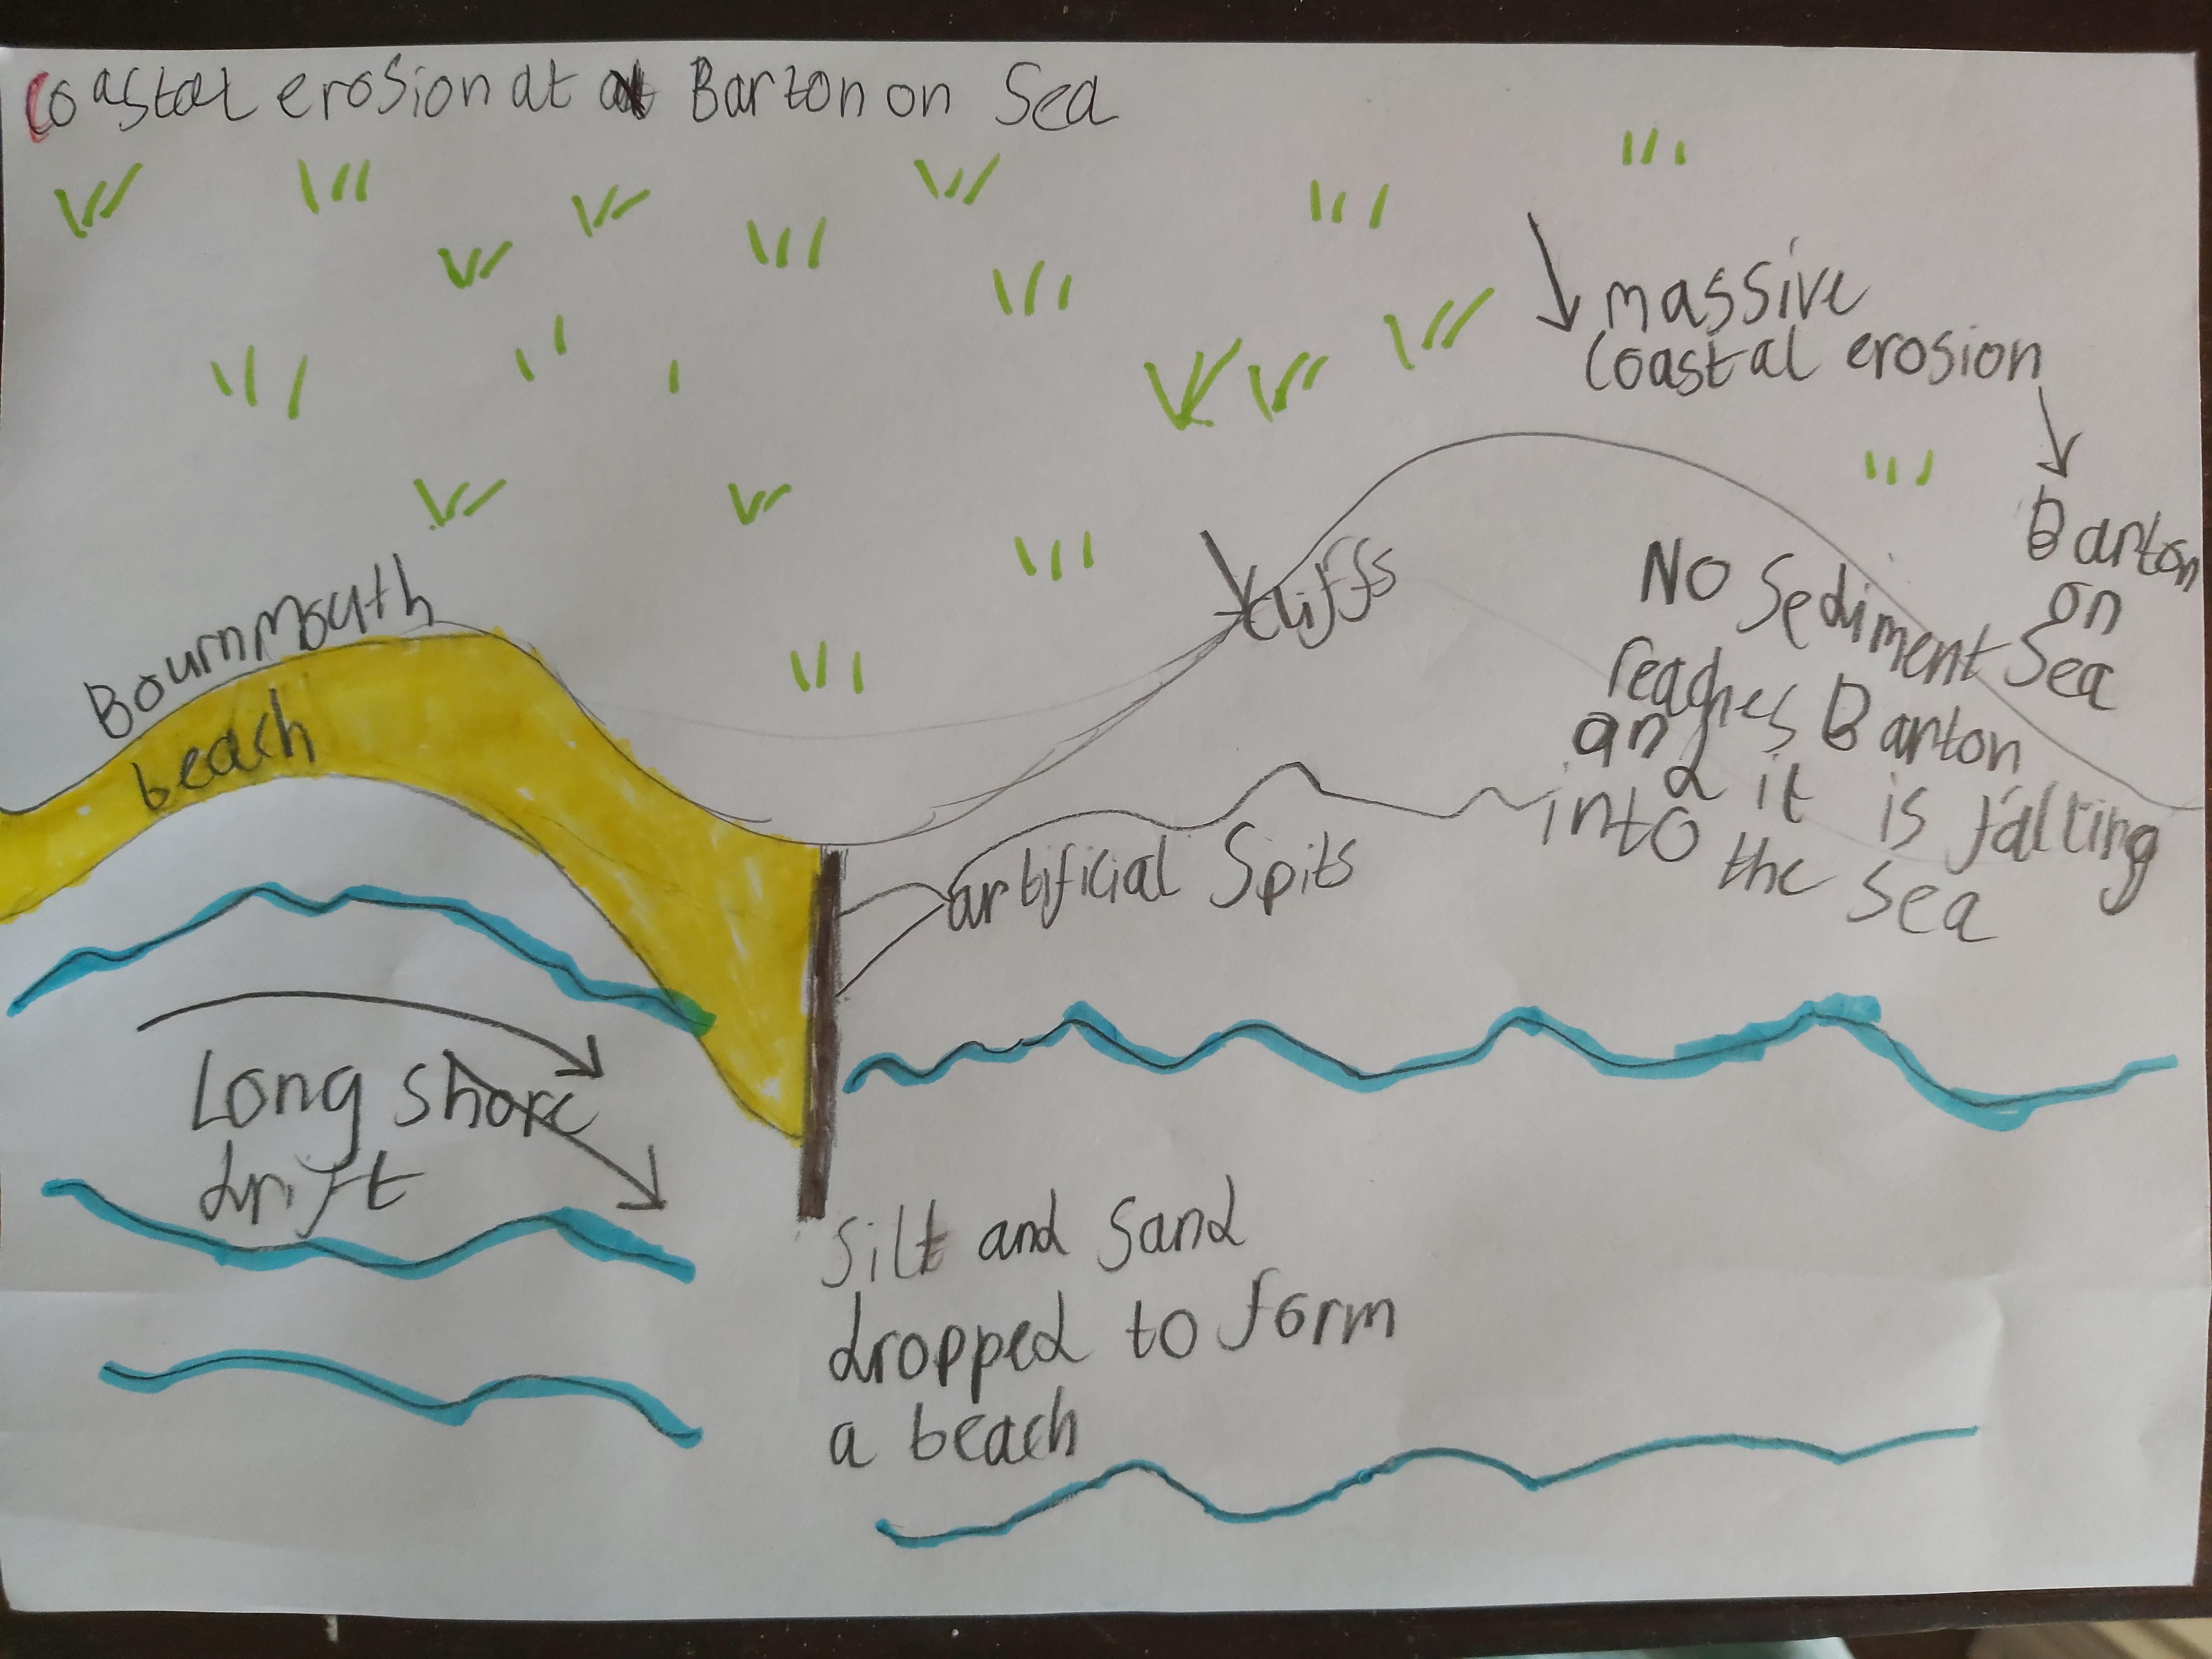 Coastal erosion at at Barton on Sea
massive
Coastal erosion
Barton
on
Sea
Cliffs
No Sediment
reaches Barton
and it is falling
into the Sea
Bournmouth
beach
artificial Spits
Long shore
drift
Silt and Sand
dropped to form
a beach